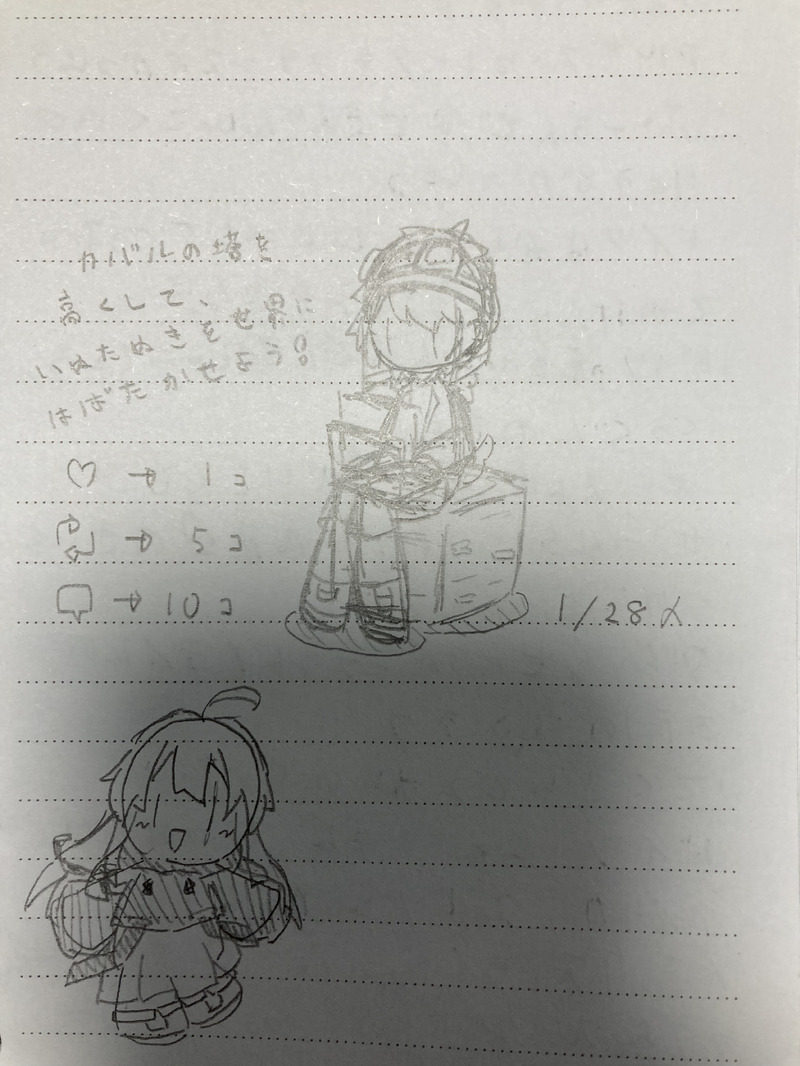 カバルの塔を
高くして、
いぬたぬきを世界に
はばたかせよう!
♡→1コ
→5コ
→10コ
1/28〆